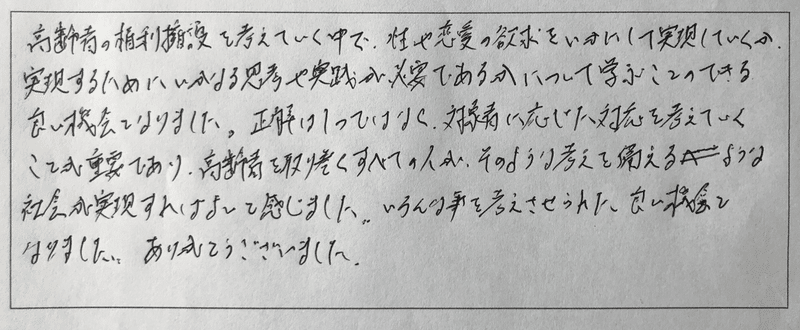 高齢者の権利擁護を考えていく中で、性や恋愛の欲求をいかにして実現していくか、
実現するためにいかなる思考や実践が必要であるかについて学ぶことのできる
良い機会となりました。正解は1つではなく、対象者に応じた対応を考えていく
ことが重要であり、高齢者を取り巻くすべての人が、そのような考えを備えるような
社会が実現すればよいと感じました。いろんな事を考えさせられた、良い機会と
なりました。ありがとうございました。